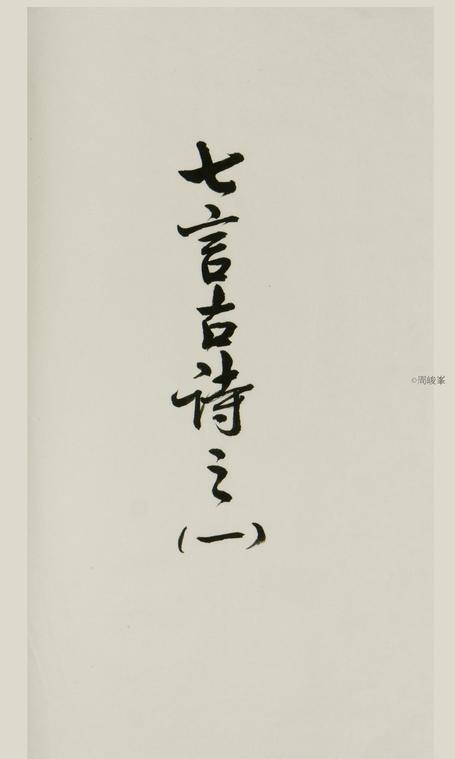 七言古诗之(一)
©周峻峯